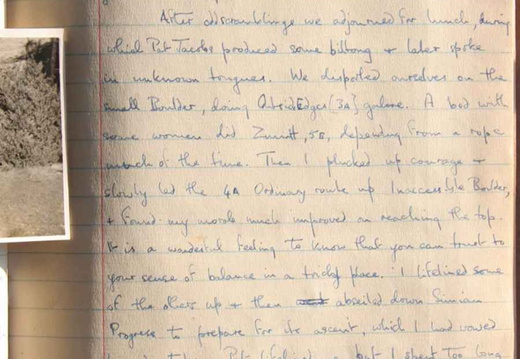 After odscramblings we adjourned for lunch, during
which Pat Jacobs produced some biltong + later spoke
in unknown tongues. We disported ourselves on the
small Boulder, doing OutsidEdges [3A] galore. A bod with
some women did Zmutt, 5B, depending from a rope
much of the time. Then I plucked up courage +
slowly led the 4A Ordinary route up Inaccessible Boulder,
+ found my morals much improved on reaching the top.
It is a wonderful feeling to know that you can trust to
your sense of balance in a tricky place. I lifelined some
of the others up + then abseiled down Simian
Progress to prepare for its ascent, which I had vowed
but I spent too long